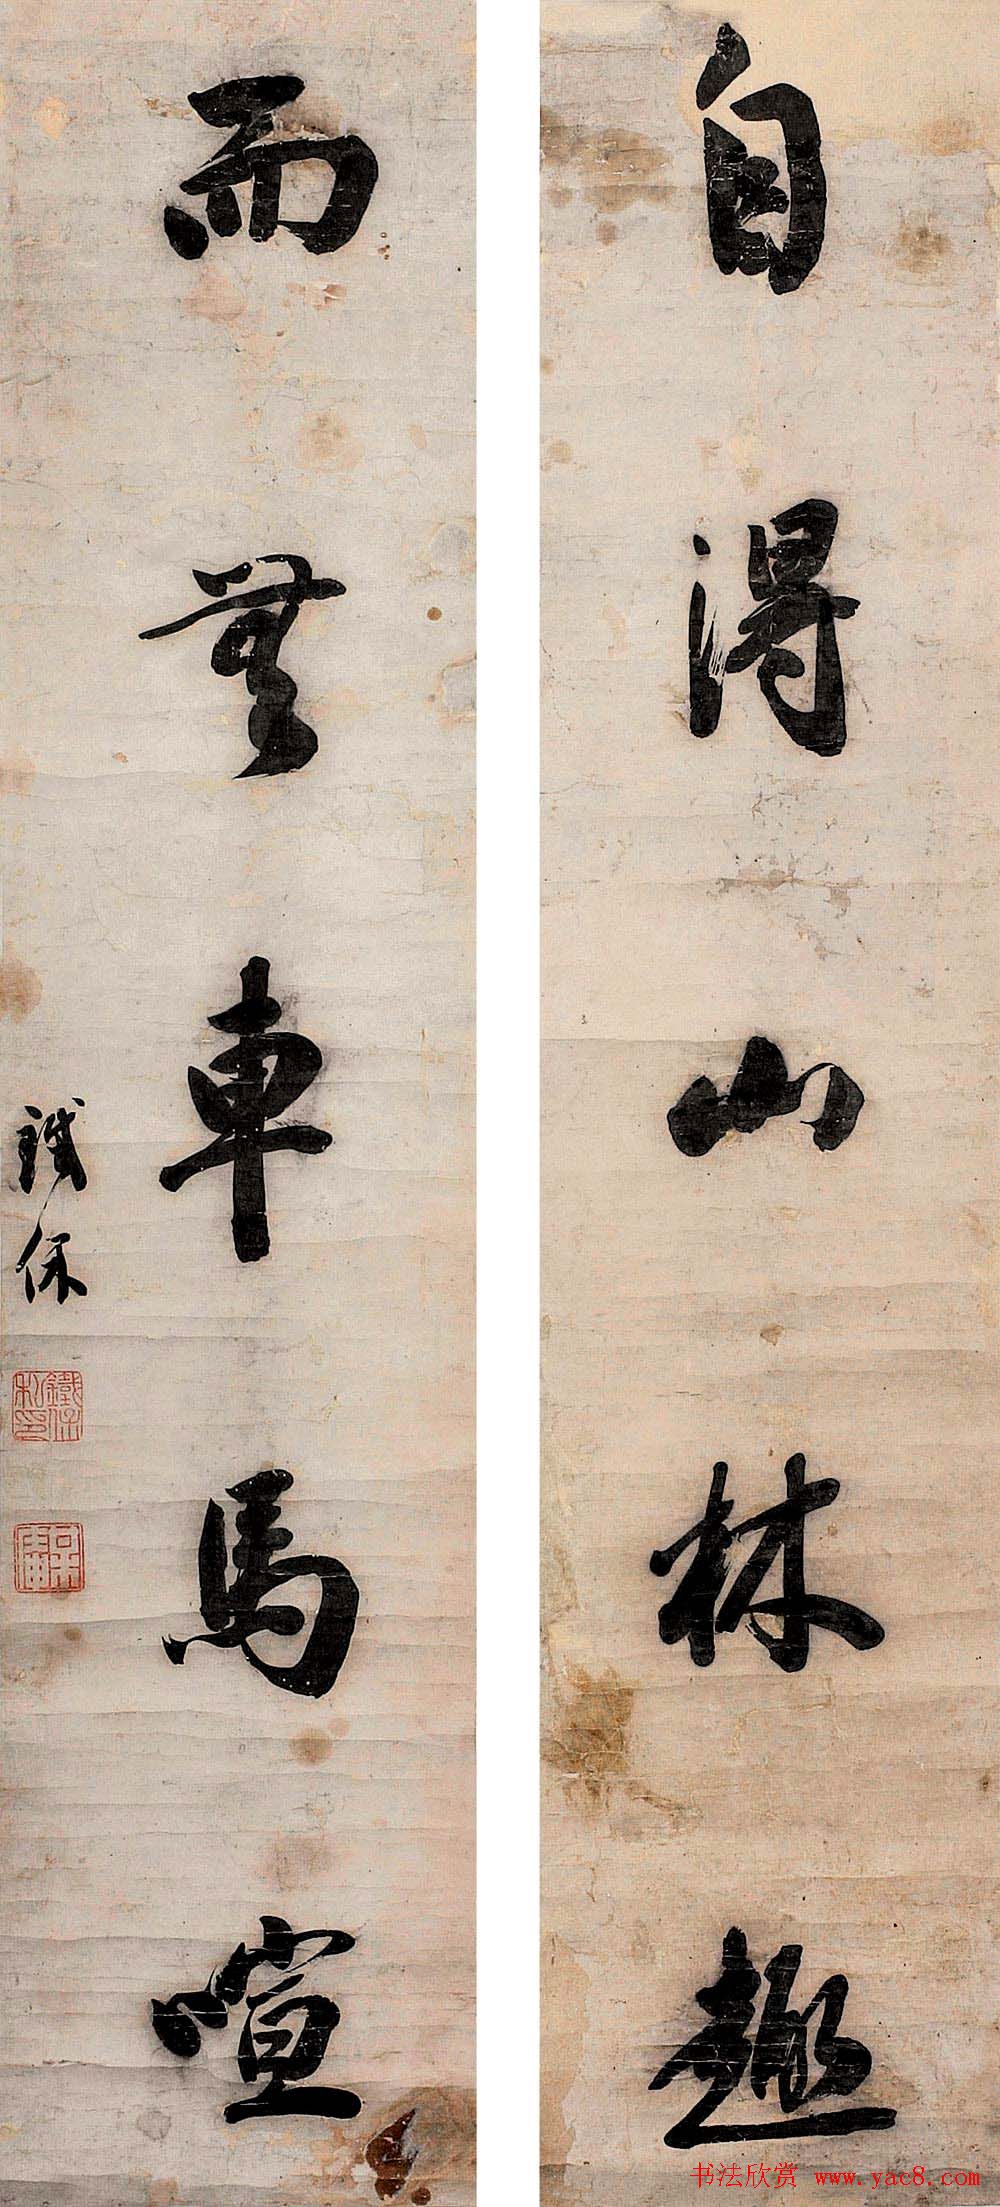 自得山林趣
而無車馬喧
鐵保
鐵保私印
书法欣赏 www.yac8.com